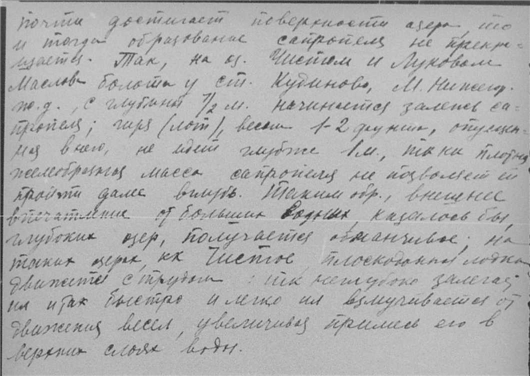 почти достигает поверхности озера, то
и тогда образование сапропеля не прекра-
щается. Так, на оз. Чистом и Луковом
Маслова болота у ст. Кудиново, М. Нижег.
ж.д., с глубины 1/2 м. начинается залежь са-
пропеля; гиря (лот), весом 1-2 фунта, опущен-
ная в него, не идет глубже 1 м., т.к. плотная
желеобразная масса сапропеля не позволяет ей
пройти далее вглубь. Таким обр., внешнее
впечатление от больших водных, казалось бы,
глубоких озер, получается обманчивое, на
таких озерах, как Чистое, плоскодонная лодка
движется с трудом: так неглубоко залегает
ил и так быстро и легко ил взмучивается от
движения весел, увеличивая примесь его в
верхних слоях воды.